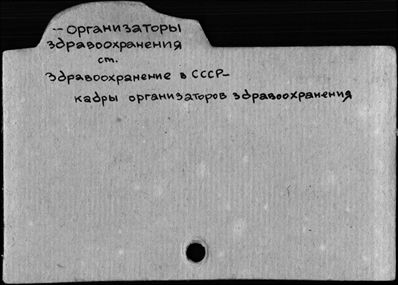 – Организаторы
здравоохранения
ст.
Здравоохранение в СССР–
кадры организаторов здравоохранения